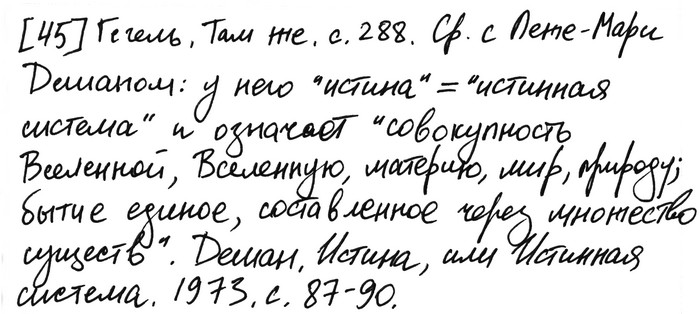 [45] Гегель, Там же. с. 288. Ср. с Леже-Мари
Дешаном: у него "истина" = "истинная
система" и означает "совокупность
Вселенной, Вселенную, материю, мир, природу;
бытие единое, составленное через множество
существ". Дешан, Истина, или Истинная
система. 1973. с. 87-90.